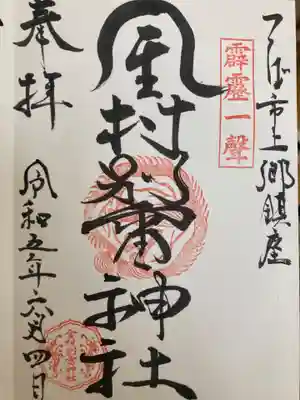 つくば市上郷鎮座
霹靂一聲
金村別雷神社
奉拝
令和五年六月四日